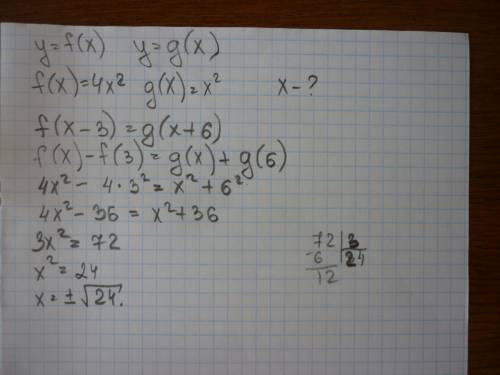 y=f(x) y=g(x)
f(x)=4x² g(x)=x² x-?
f(x-3)=g(x+6)
f(x)-f(3)=g(x)+g(6)
4x²- 4·3²=x²+6²
4x²-36=x²+36
3x²=72
x²=24
x=±√24.
72 3
-6 24
12